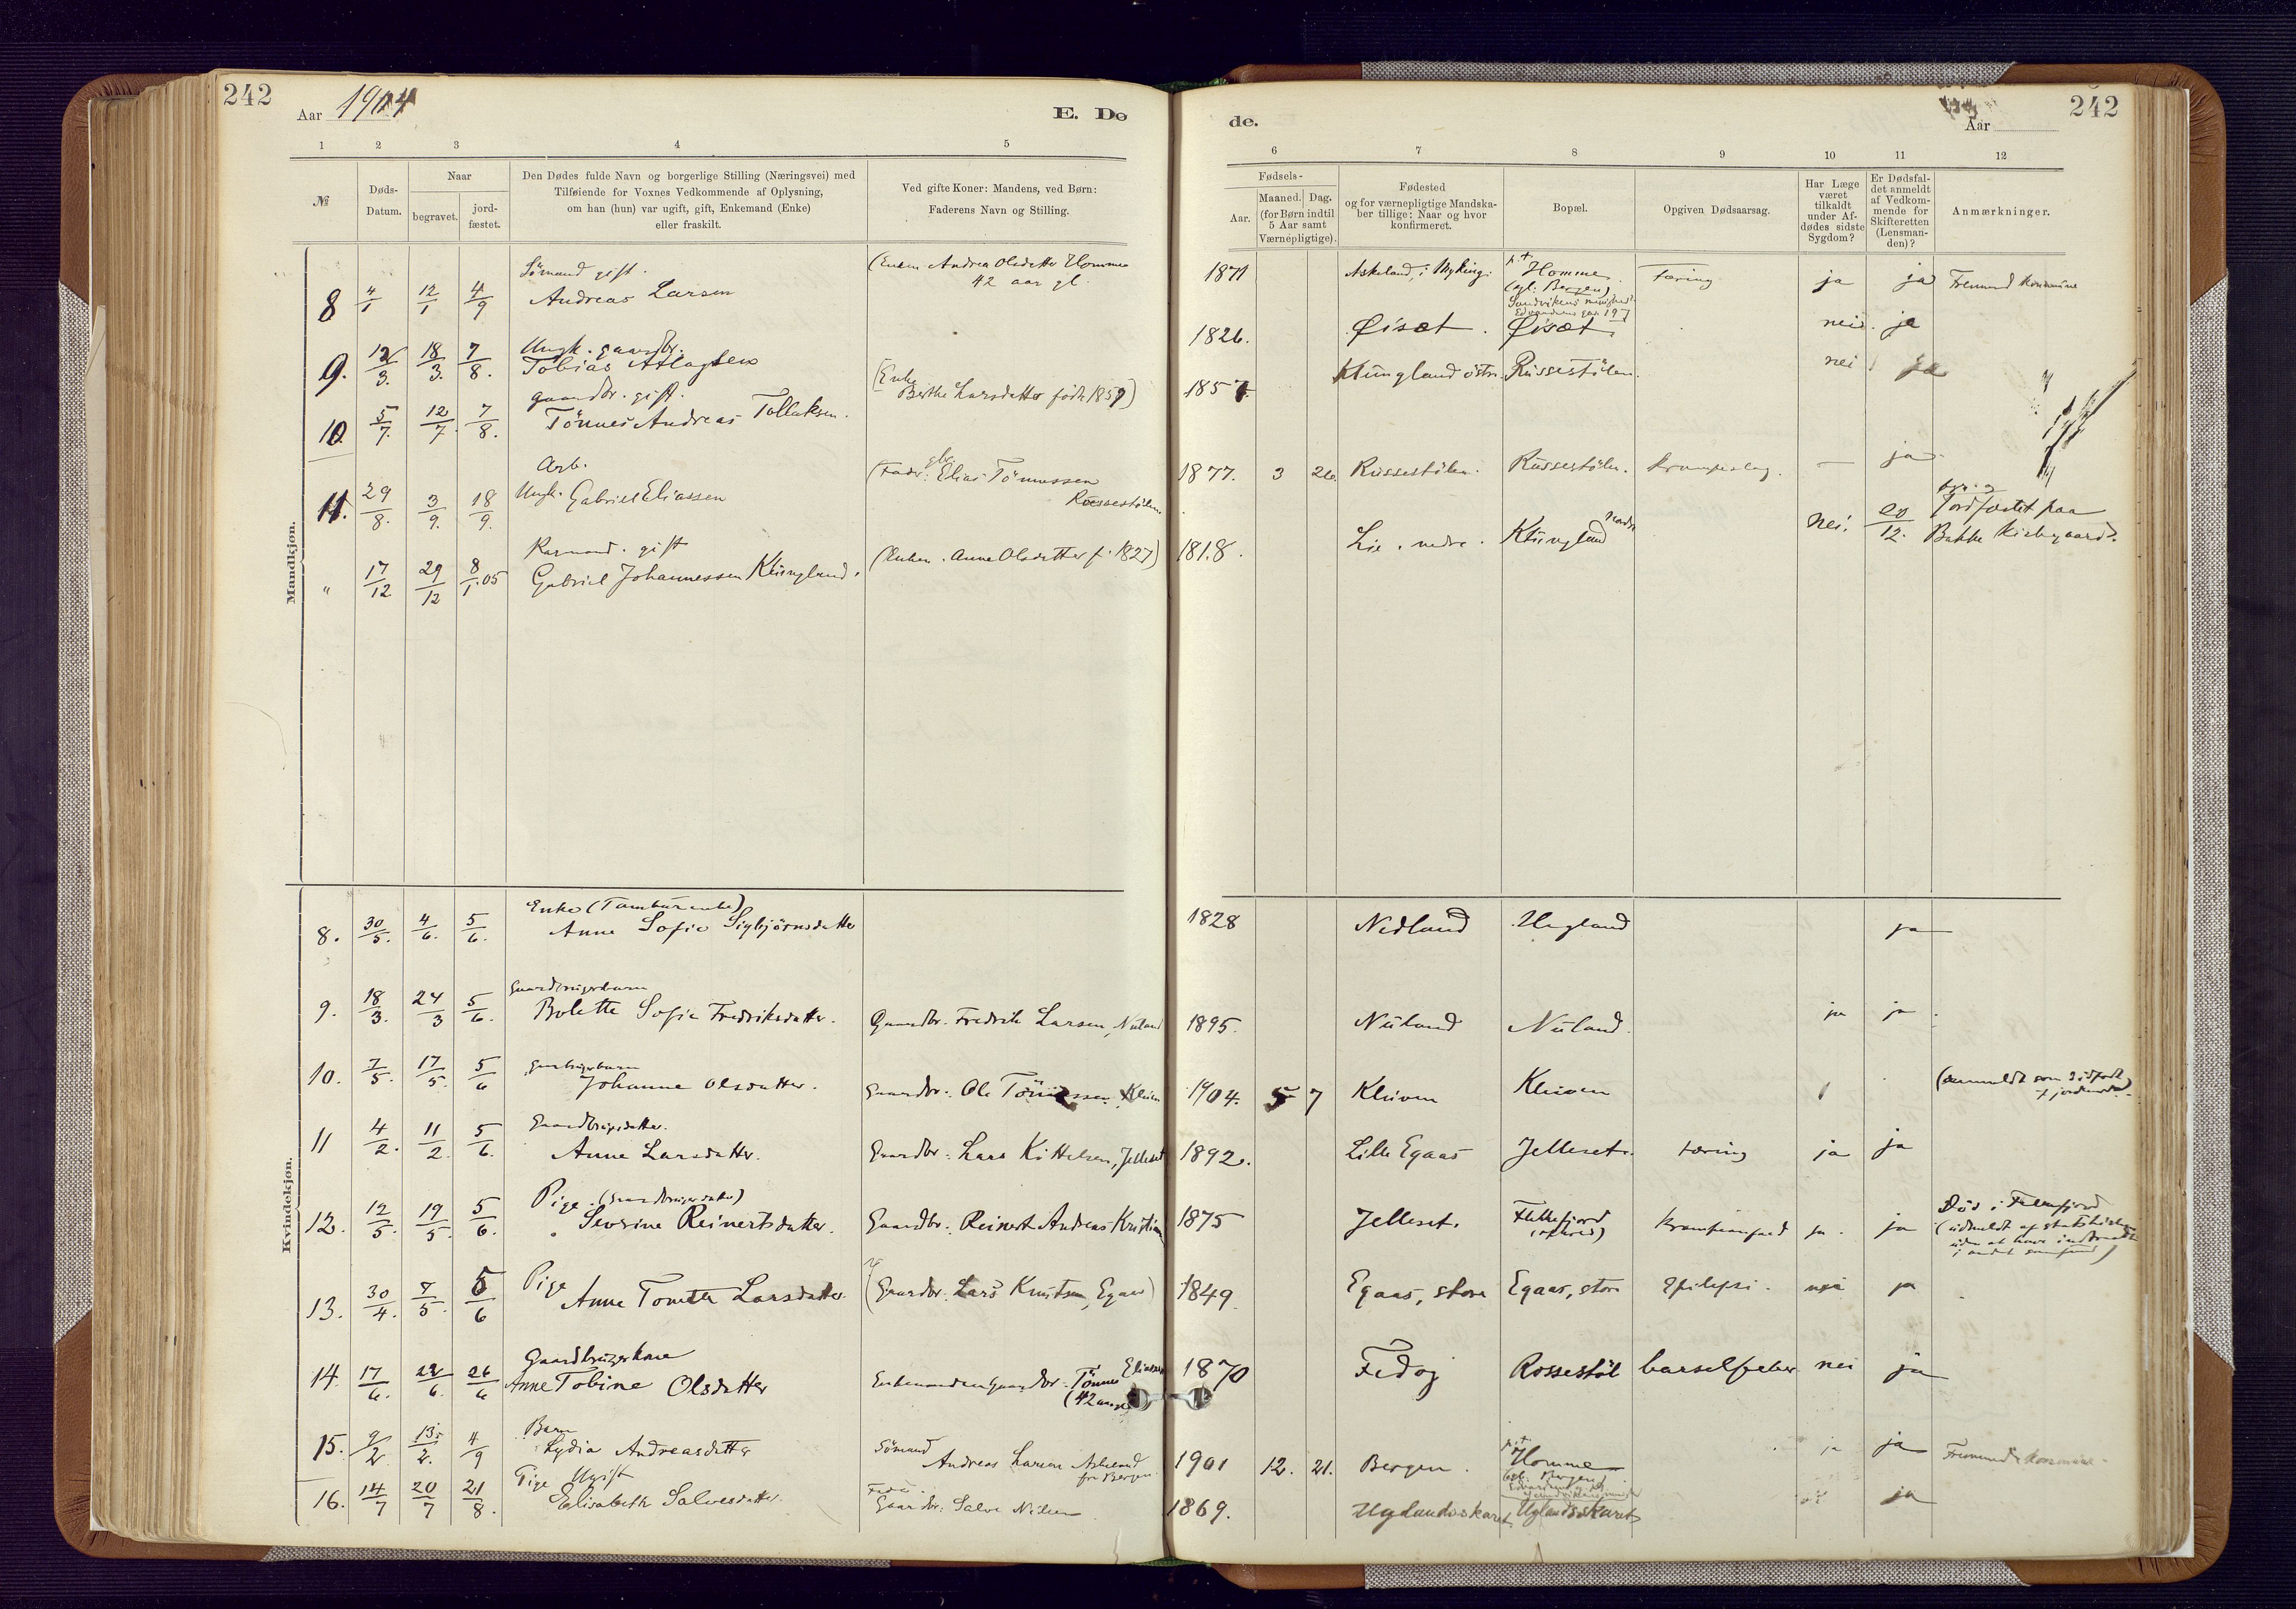 242
Aar 1904
E. Dø
1 2 3 4 5
№
Døds-
Datum.
Naar
begravet.
jord-
fæstet.
Den Dødes fulde Navn og borgerlige Stilling (Næringsvei) med
Tilføiende for Voxnes Vedkommende af Oplysning,
om han (hun) var ugift, gift, Enkemand (Enke)
eller fraskilt.
Ved gifte Koner: Mandens, ved Børn:
Faderens Navn og Stilling.
de.
Aar
242
6 7 8 9 10 11 12
Fødsels-
Aar.
Maaned. Dag.
(for Børn indtil
5 Aar samt
Værnepligtige).
Fødested
og for værnepligtige Mandska-
ber tillige: Naar og hvor
konfirmeret.
Bopæl.
Opgiven Dødsaarsag.
Har Læge
været
tilkaldt
under Af-
dødes sidste
Sygdom?
Er Dødsfal-
det anmeldt
af Vedkom-
mende for
Skifteretten
(Lensman-
den)?
Anmærkninger.
Mandkjøn.
Sömand gift.
(Enken Andrea Olsdatter Homme
42 aar gl.
8 4/1 12/1 4/9 Andreas Larsen
1871 Askeland, i p.t. Homme
(gl. Bergen)
Tæring ja ja Fremmed Kommune
Ungk. gaardbr.
9. 12/3. 18/3. 7/8. Tobias
1826. Øisæt. Øisæt. nei. ja
gaardbr. gift.
(Enke
Berthe Larsdatter født 1859)
10. 5/7. 12/7. 7/8. Tönnes Andreas Tollaksen.
1857 Klungland östre. Russestölen. nei ja
Arb.
11. 29/8. 3/9. 18/9. Ungk. Gabriel Eliassen
(Fader: gbr. Elias Tönnessen
Russestölen.
1877. 3 26. Russestölen. Russestölen. Krampeslag. — ja
Kaarmand. gift
" 17/12 29/12 8/1.05 Gabriel Johannessen Klungland.
(Enken. Anne Olsdatter f. 1827)
1818. Lie. nedre. Klungland nordre nei. 20/12. Jordfæstet paa
Bakke Kirkegaard.
Kvindekjøn.
Enke (Tambur enke)
8. 30/5. 4/6. 5/6. Anne Sofie Sigbjörnsdatter
1828 Nedland Ugland ja
Gaardbrugerbarn
9. 18/3. 24/3 5/6. Bolette Sofie Fredriksdatter.
Gaardbr. Fredrik Larsen, Nuland
1895. Nuland Nuland. ja ja
Gaardbrugerbarn
10. 7/5. 17/5. 5/6 Johanne Olsdatter.
Gaardbr. Ole Tönnessen Kleiven
1904. 5 7 Kleiven Kleiven
(anmeldt som
Gaardbrugerdatter.
11 4/2. 11/2. 5/6. Anne Larsdatter.
Gaardbr. Lars Kittelsen, Jelleset
1892. Lille Egaas Jelleset. tæring ja ja
Pige (Gaardbrugerdatter)
12. 12/5. 19/5. 5/6. Severine Reinertsdatter.
Gaardbr. Reinert Andreas Kristian
1875 Jelleset. Flekkefjord
ja. ja Död i Flekkefjord
(udmeldt af statskirken
uden at have indtraadt
i andet samfund)
Pige
13. 30/4. 7/5. 5/6 Anne Tomette Larsdatter
(Gaardbr. Lars Knutsen, Egaas)
1849. Egaas, store Egaas, store Epilepsi. ja
Gaardbrugerkone
14. 17/6. 22/6. 26/6 Anne Tobine Olsdatter
Enkemanden Gaardbr. Tönnes Eliassen
(42 aar
1870 Fedog Rossestöl barselfeber nei ja
Barn
15. 9/2 13/2. 4/9 Lydia Andreasdatter
Sömand
Andreas Larsen Askeland
fra Bergen
1901 12. 21. Bergen. p.t. Homme
ja ja Fremmed Kommune
Pige Ugift
16. 14/7 20/7 21/8. Elisabeth Salvesdatter.
Fader
Gaardbr. Salve Nilsen
1869. Uglandsskaret Uglandsskaret ja